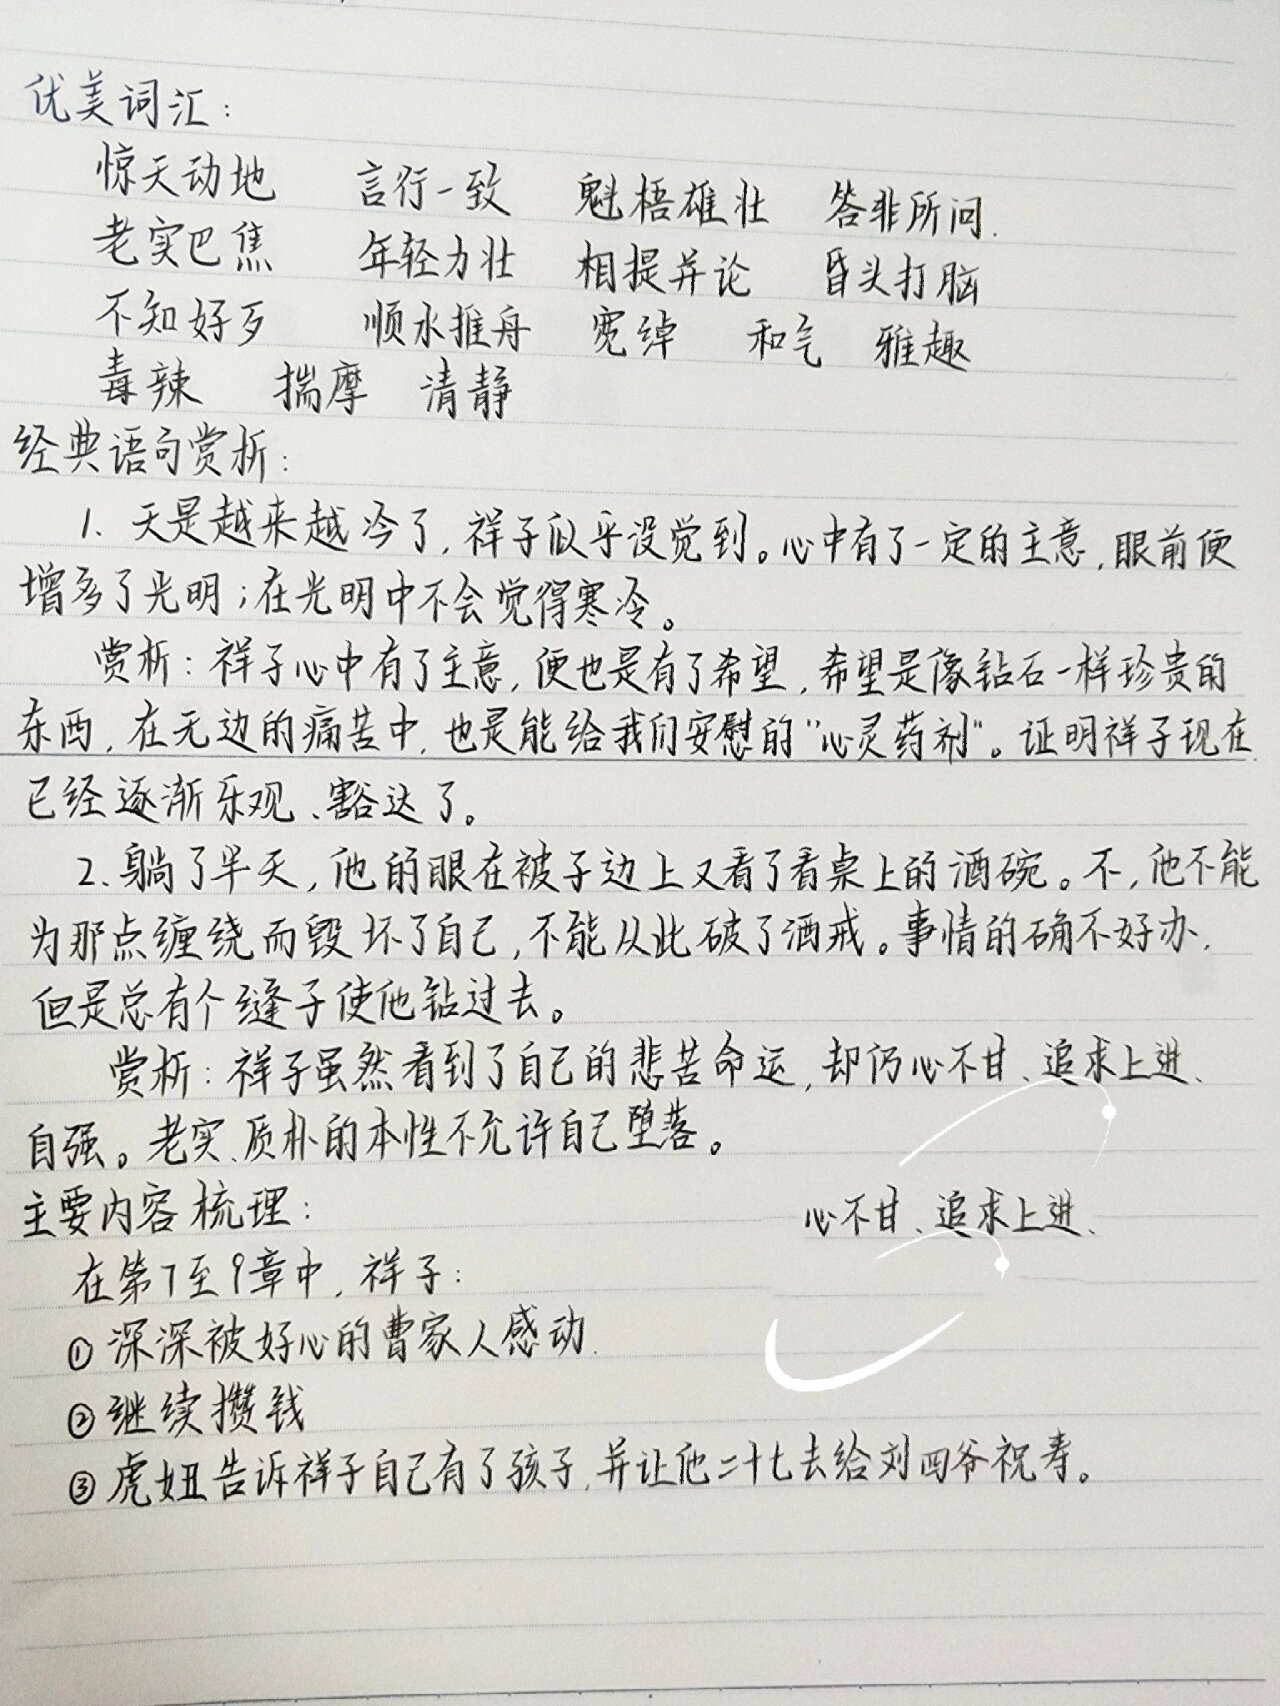 优美词汇：
惊天动地 言行一致 魁梧雄壮 答非所问.
老实巴焦 年轻力壮 相提并论 昏头打脑
不知好歹 顺水推舟 宽绰 和气 雅趣
毒辣 揣摩 清静
经典语句赏析：
1. 天是越来越冷了，祥子似乎没觉到。心中有了一定的主意，眼前便
增多了光明；在光明中不会觉得寒冷。
赏析：祥子心中有了主意，便也是有了希望，希望是像钻石一样珍贵的
东西，在无边的痛苦中，也是能给我们安慰的“心灵药剂”。证明祥子现在
已经逐渐乐观、豁达了。
2. 躺了半天，他的眼在被子边上又看了看桌上的酒碗。不，他不能
为那点缠绕而毁坏了自己，不能从此破了酒戒。事情的确不好办，
但是总有个缝子使他钻过去。
赏析：祥子虽然看到了自己的悲苦命运，却仍心不甘、追求上进、
自强。老实、质朴的本性不允许自己堕落。
主要内容梳理：
心不甘、追求上进、
在第7至9章中，祥子：
①深深被好心的曹家人感动.
②继续攒钱
③虎妞告诉祥子自己有了孩子，并让他二十七去给刘四爷祝寿。